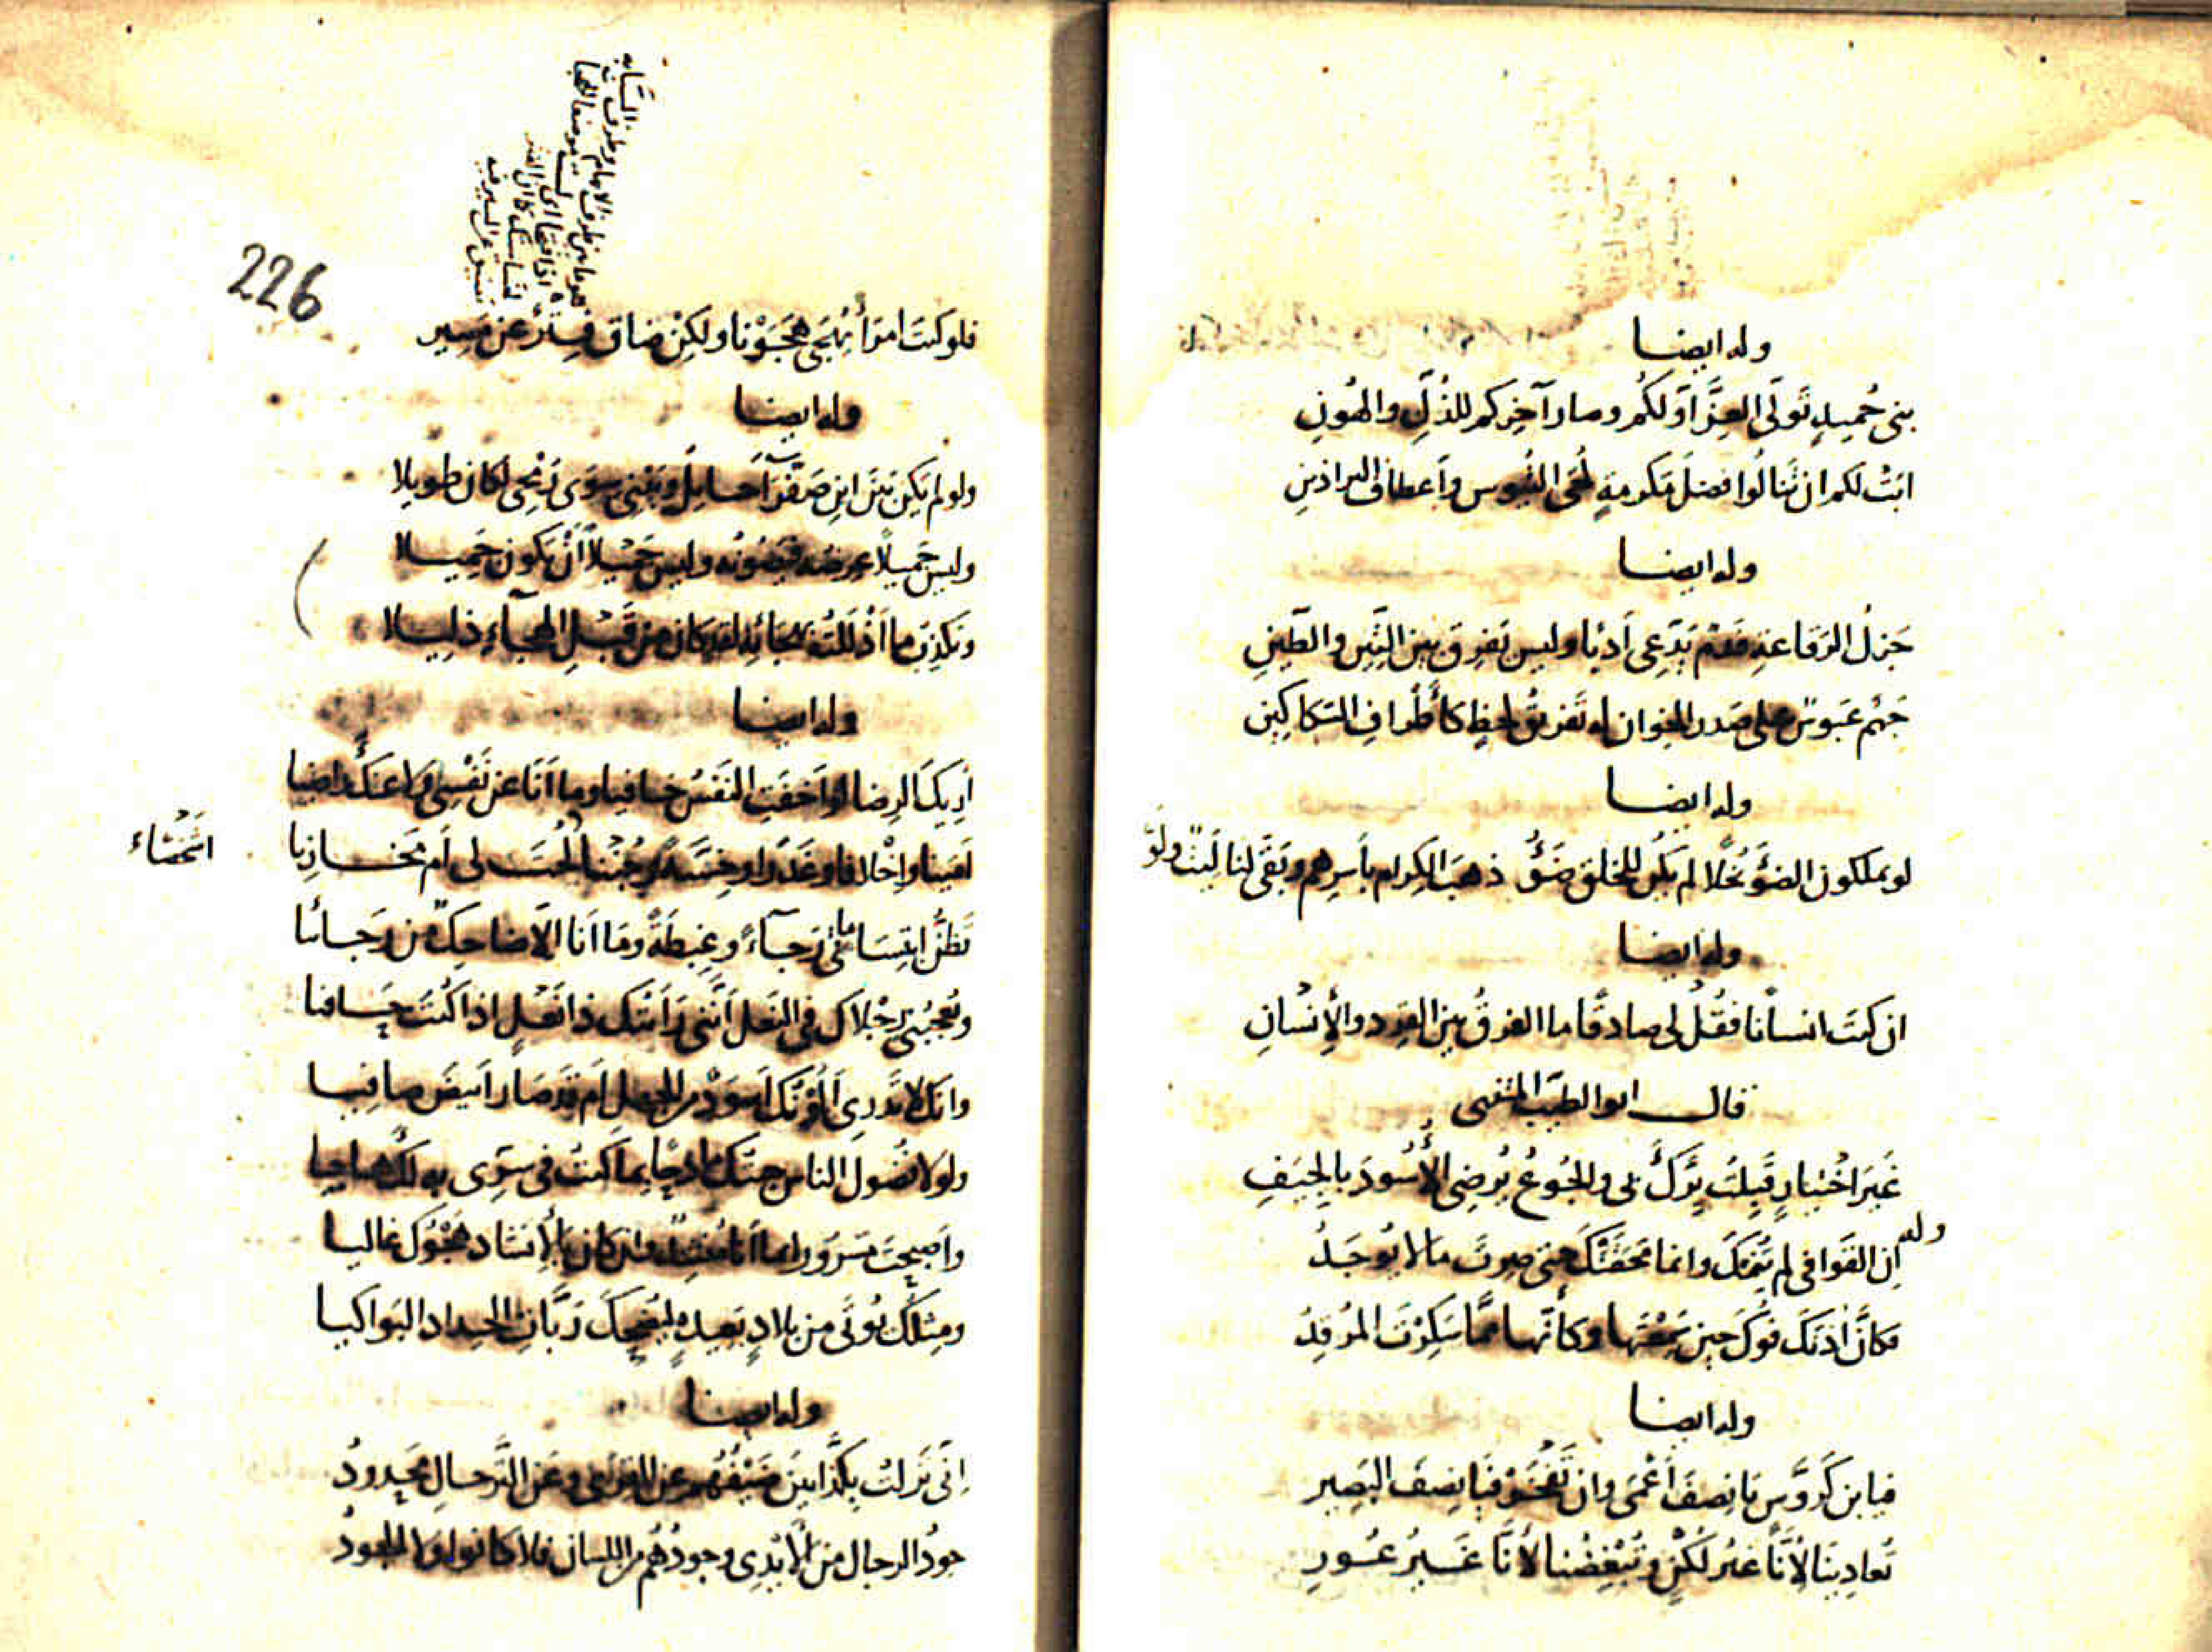 وله ايضا
بنى حُميدٍ تَولّى العِزَّ اَوّلكُم وصار آخركم للذُلِّ والهُونِ
ابَتْ لكم ان تَنالُوا فضلَ مَكرمةٍ لُحَى التُيُوس واَعطاف البراذينِ
وله ايضا
جَزلُ الرَقاعةِ فَدْمٌ يَدّعى اَدبًا وليس يَفرِق بين التِين والطّينِ
جَهْم عَبوسٌ على صَدر الخِوان له تَفريقُ لحظٍ كأَطْرافِ السَكاكِينِ
وله ايضا
لو يملكون الضَوْءَ بُخْلًا لم يكُن للخلق ضَوْءٌ ذهبَ الكِرام باَسرِهم وبَقَى لنا لَيتٌ ولَوْ
وله ايضا
ان كنتَ انسانًا فقُلْ لى صادقًا ما الفرقُ بين القِرد والاِنسانِ
قال ابو الطيّب المتنبى
غَيرَ اخْتيارٍ قَبِلتُ بِرَّكَ بى والجُوعُ يُرضِى الأُسُودَ بالجِيَفِ
وله
اِن القَوافى لم تُنِمْكَ وانما مَحَقَتْكَ حتى صِرتَ مَا لا يُوجَدُ
فكاَنَّ اُذنَكَ فُوكَ حين سَمِعْتَها وكاَنّها ممّا سَكِرْتَ المُرقِدُ
وله ايضا
فيا ابن كَرَوَّسٍ يا نِصفَ اَعْمى وان تَفْخَرْ فيَا نِصفَ البَصِيرِ
تُعادِينَا لِأنّا غيرُ لُكْنٍ وتُبْغِضُنا لأنّا غَيرُ عُورِ
226
فلو كنتَ امرَأً يُهْجَى هَجَوْنا ولكِنْ ضاق فِتْرٌ عن مَسِيرِ
وله ايضا
ولو لم يكن بَيْنَ ابنِ صَفْرَآءَ حايِلٌ وبَيْنى سِوَى رُمْحى لكان طويلا
وليس جَميلًا عِرضُه فيَصُونُه وليس جَميلًا اَنْ يكون جَميلا
ويَكذِبُ ما اَذْلَلْتُه بهجائه لقد كان من قَبْلِ الهجاءِ ذليلا
وله ايضا
اُرِيكَ الرِضا لو اَخفَتِ النَفْسُ خافيا وما اَنَا عن نَفْسِى ولا عنكَ راضيا
اَمَينًا واِخْلافا وغَدْرًا وخِسَّةً وجُبْنًا اَشَخْصًا لُحتَ لى اَم مَخازيا
تَظُنُّ ابتِسَاماتى رَجآءً وغِبطَةً وما اَنا الّا ضاحِكٌ من رَجائيا
وتُعجِبُنى رِجْلاكَ فى النَعل اَنّنى رَاَيتُكَ ذا نَعْلٍ اذا كُنتَ حَافيا
وانّكَ لا تَدرِى اَلَوْنُكَ اَسوَدٌ من الجهل اَم قد صَار اَبيضَ صافيا
ولولا فُضُولُ الناس جِئتُكَ مادِحًا بما كنتُ فى سِرّى به لكَ هاجيا
واَصبحتَ مَسرُورا بما اَنا مُنشِدٌ وان كان بالاِنشاد هَجْوُكَ غاليا
ومِثلُكَ يُوتَى من بلادٍ بَعِيدةٍ ليُضحِكَ رَبّاتِ الحِداد البَواكيا
وله ايضا
اِنّى نَزلتُ بكذّابِينَ ضَيْفُهُم عن القِرَى وعن التَرحالِ مَحدودُ
جُودُ الرجال من الأَيدِى وجودُهُم من اللسان فلا كانوا ولا الجودُ